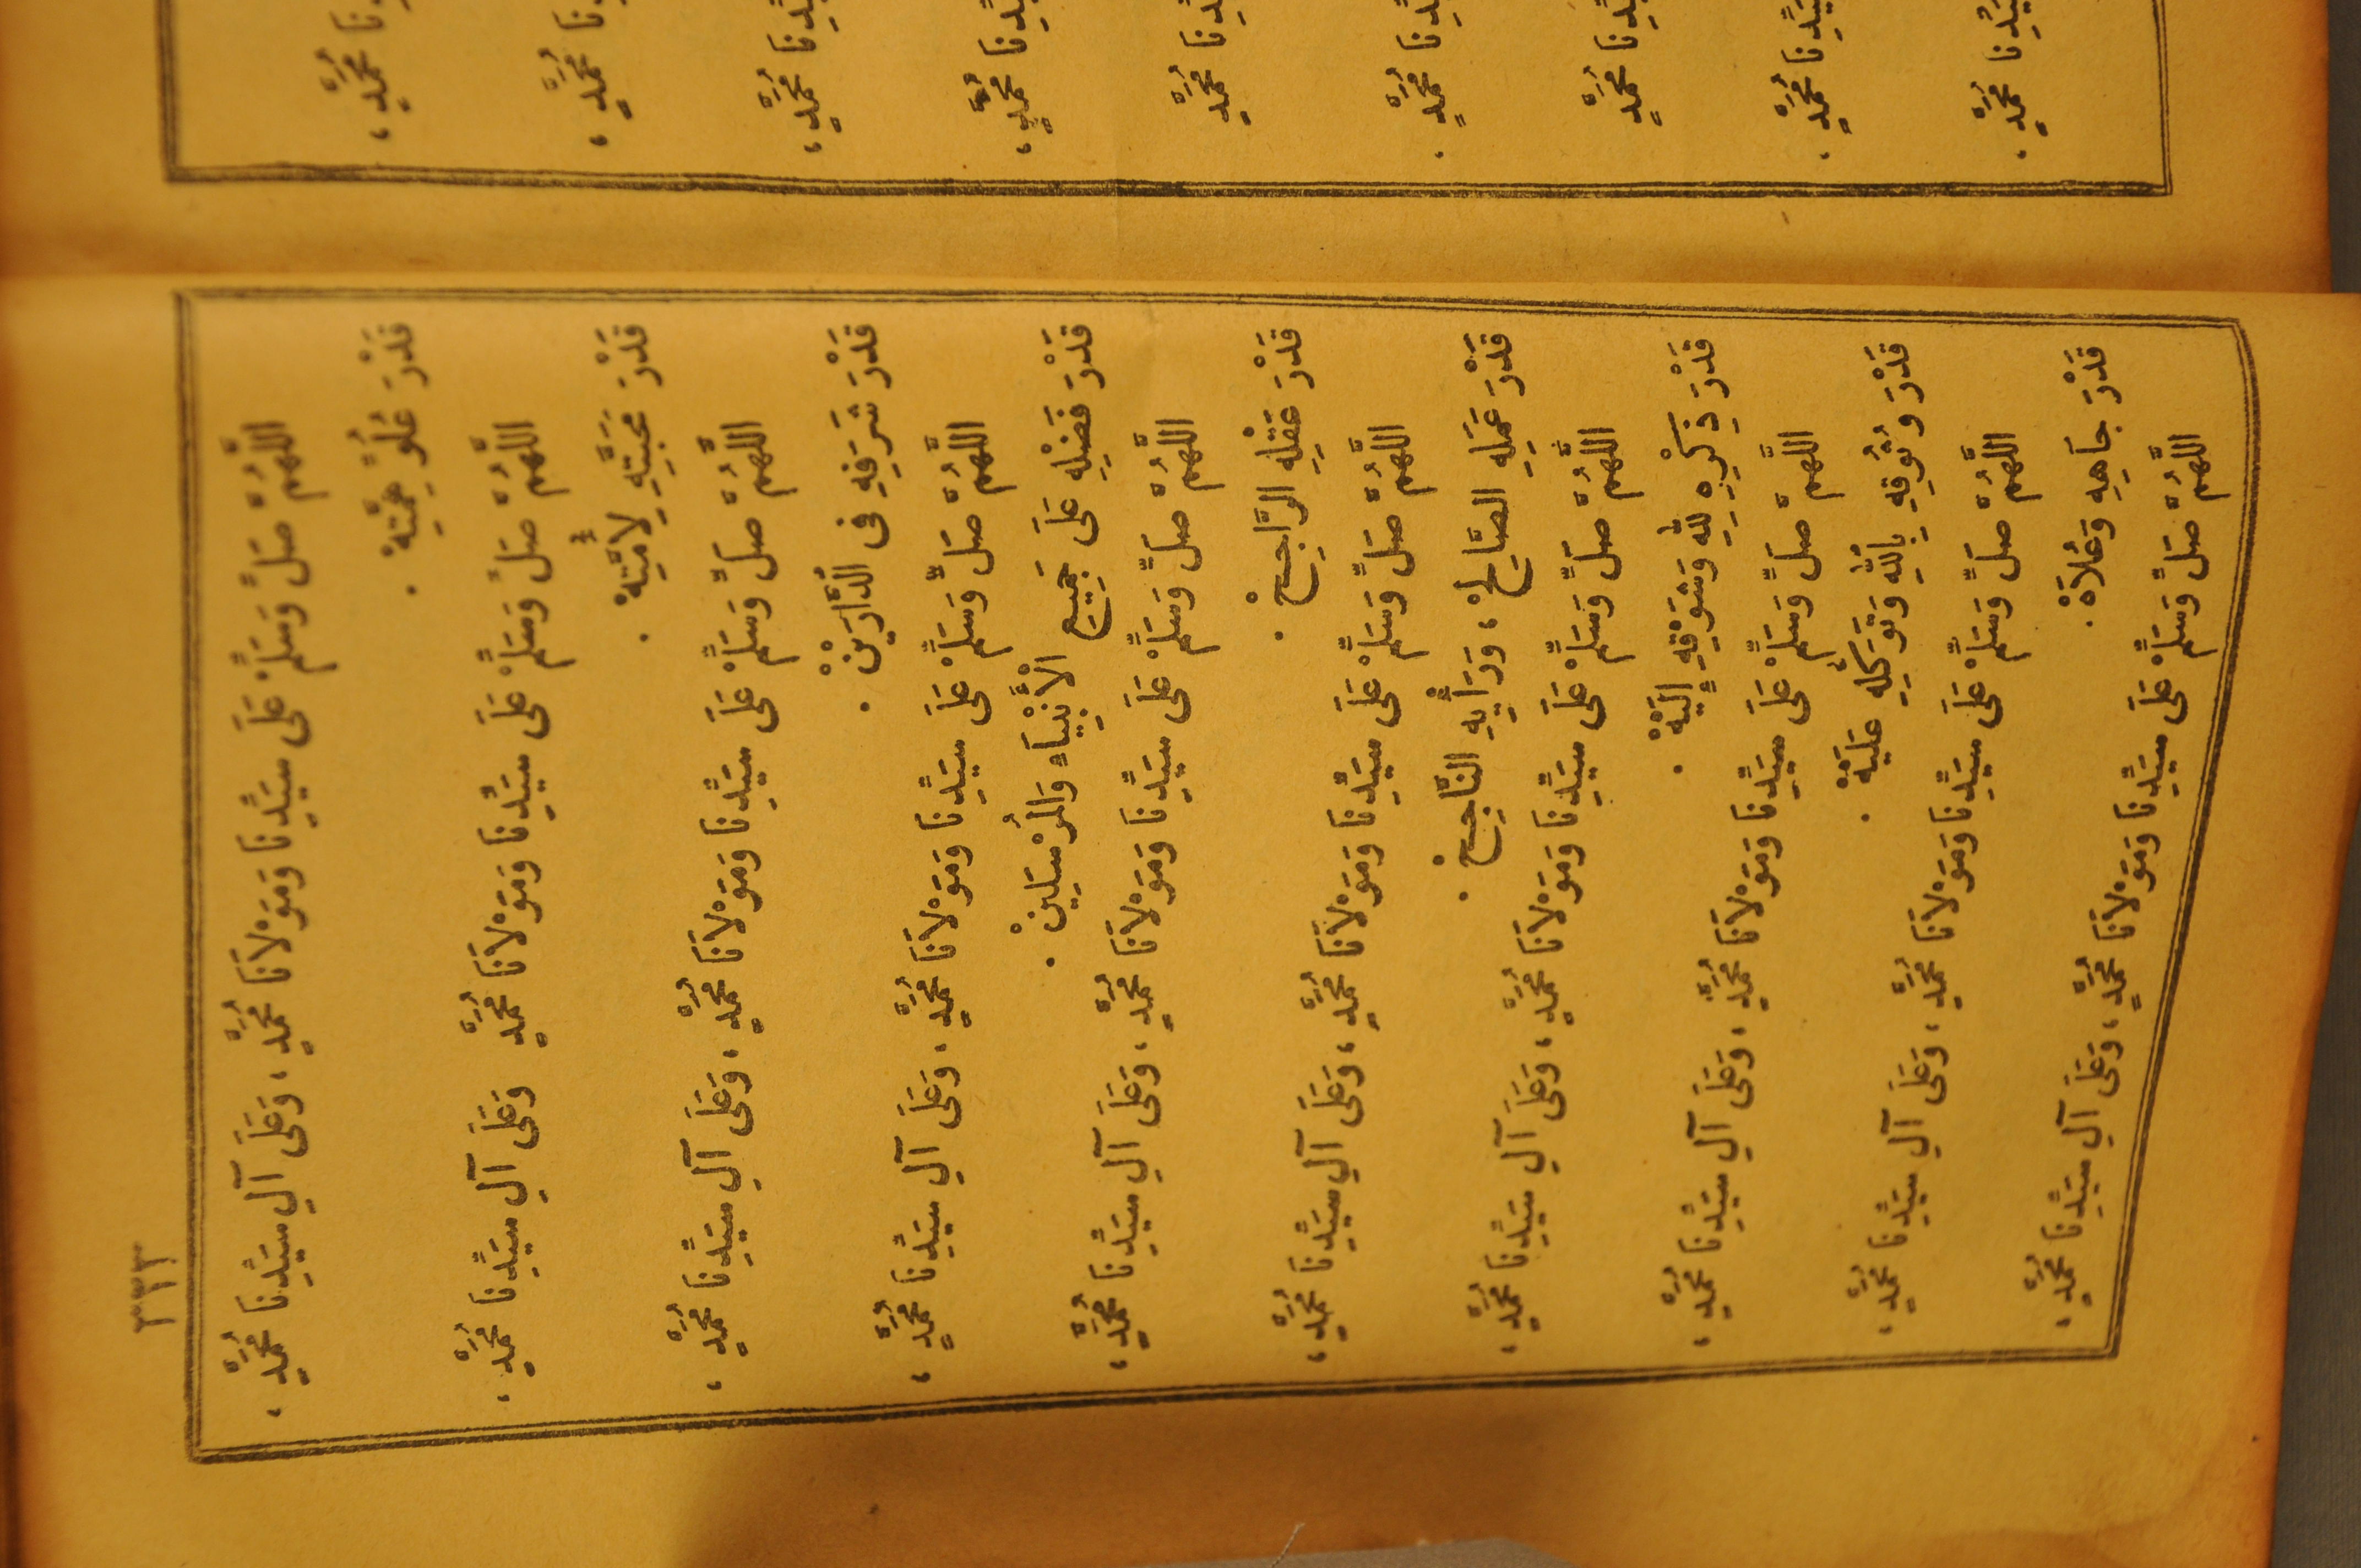 مُحَمَّدٍ،
مُحَمَّدٍ،
مُحَمَّدٍ،
مُحَمَّدٍ،
مُحَمَّدٍ
مُحَمَّدٍ،
مُحَمَّدٍ
مُحَمَّدٍ،
مُحَمَّدٍ،
اللَّهُمَّ صَلِّ وَسَلِّمْ عَلَى سَيِّدِنَا وَمَوْلَانَا مُحَمَّدٍ، وَعَلَى آلِ سَيِّدِنَا مُحَمَّدٍ،
قَدْرَ عُلُوِّ هِمَّتِهْ .
اللَّهُمَّ صَلِّ وَسَلِّمْ عَلَى سَيِّدِنَا وَمَوْلَانَا مُحَمَّدٍ وَعَلَى آلِ سَيِّدِنَا مُحَمَّدٍ،
قَدْرَ مَحَبَّتِهِ لِأُمَّتِهْ .
اللَّهُمَّ صَلِّ وَسَلِّمْ عَلَى سَيِّدِنَا وَمَوْلَانَا مُحَمَّدٍ، وَعَلَى آلِ سَيِّدِنَا مُحَمَّدٍ،
قَدْرَ شَرَفِهِ فِى الدَّارَيْنْ .
اللَّهُمَّ صَلِّ وَسَلِّمْ عَلَى سَيِّدِنَا وَمَوْلَانَا مُحَمَّدٍ، وَعَلَى آلِ سَيِّدِنَا مُحَمَّدٍ،
قَدْرَ فَضْلِهِ عَلَى جَمِيعِ الْأَنْبِيَاءِ وَالْمُرْسَلِينْ .
اللَّهُمَّ صَلِّ وَسَلِّمْ عَلَى سَيِّدِنَا وَمَوْلَانَا مُحَمَّدٍ، وَعَلَى آلِ سَيِّدِنَا مُحَمَّدٍ،
قَدْرَ عَقْلِهِ الرَّاجِحْ .
اللَّهُمَّ صَلِّ وَسَلِّمْ عَلَى سَيِّدِنَا وَمَوْلَانَا مُحَمَّدٍ، وَعَلَى آلِ سَيِّدِنَا مُحَمَّدٍ،
قَدْرَ عَمَلِهِ الصَّالِحْ، وَرَأْيِهِ النَّاجِحْ .
اللَّهُمَّ صَلِّ وَسَلِّمْ عَلَى سَيِّدِنَا وَمَوْلَانَا مُحَمَّدٍ، وَعَلَى آلِ سَيِّدِنَا مُحَمَّدٍ،
قَدْرَ ذِكْرِهِ لِلَّهِ وَشَوْقِهِ إِلَيْهْ .
اللَّهُمَّ صَلِّ وَسَلِّمْ عَلَى سَيِّدِنَا وَمَوْلَانَا مُحَمَّدٍ، وَعَلَى آلِ سَيِّدِنَا مُحَمَّدٍ،
قَدْرَ وُثُوقِهِ بِاللَّهِ وَتَوَكُّلِهِ عَلَيْهْ .
اللَّهُمَّ صَلِّ وَسَلِّمْ عَلَى سَيِّدِنَا وَمَوْلَانَا مُحَمَّدٍ، وَعَلَى آلِ سَيِّدِنَا مُحَمَّدٍ،
قَدْرَ جَاهِهِ وَعُلَاهْ .
اللَّهُمَّ صَلِّ وَسَلِّمْ عَلَى سَيِّدِنَا وَمَوْلَانَا مُحَمَّدٍ، وَعَلَى آلِ سَيِّدِنَا مُحَمَّدٍ،